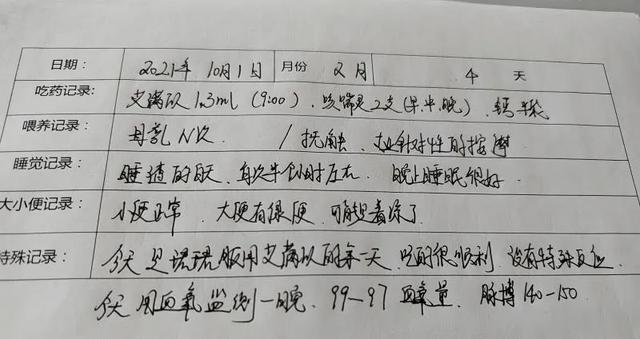 日期： 2021年 10月1日 月份 2月 4 天
吃药记录： 艾满欣 1.3ml (9:00) . 2支(早.中.晚) . 钙半粒
喂养记录： 母乳 N次 / 抚触、 针对性的按摩
睡觉记录： 睡的 每次半个小时左右. 晚上睡眠很好
大小便记录： 小便正常. 大便有
特殊记录： 今天是琉琉服用艾满欣的第一天.吃的很顺利.没有特殊反应.
今天用血氧监测一晚. 99-97 血氧量. 脉搏140-150